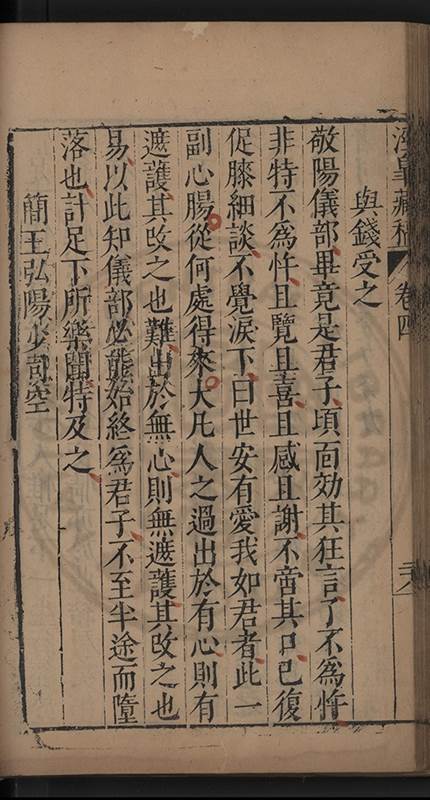 涇皐藏稿 卷四 二八
與錢受之
敬陽儀部畢竟是君子頃面効其狂言了不爲忤
非特不爲忤且覽且喜且感且謝不啻其口已復
促膝細談不覺淚下曰世安有愛我如君者此一
副心腸從何處得來大凡人之過出於有心則有
遮護其改之也難出於無心則無遮護其改之也
易以此知儀部必能始終爲君子不至半途而墮
落也計足下所樂聞特及之
簡王弘陽少司空